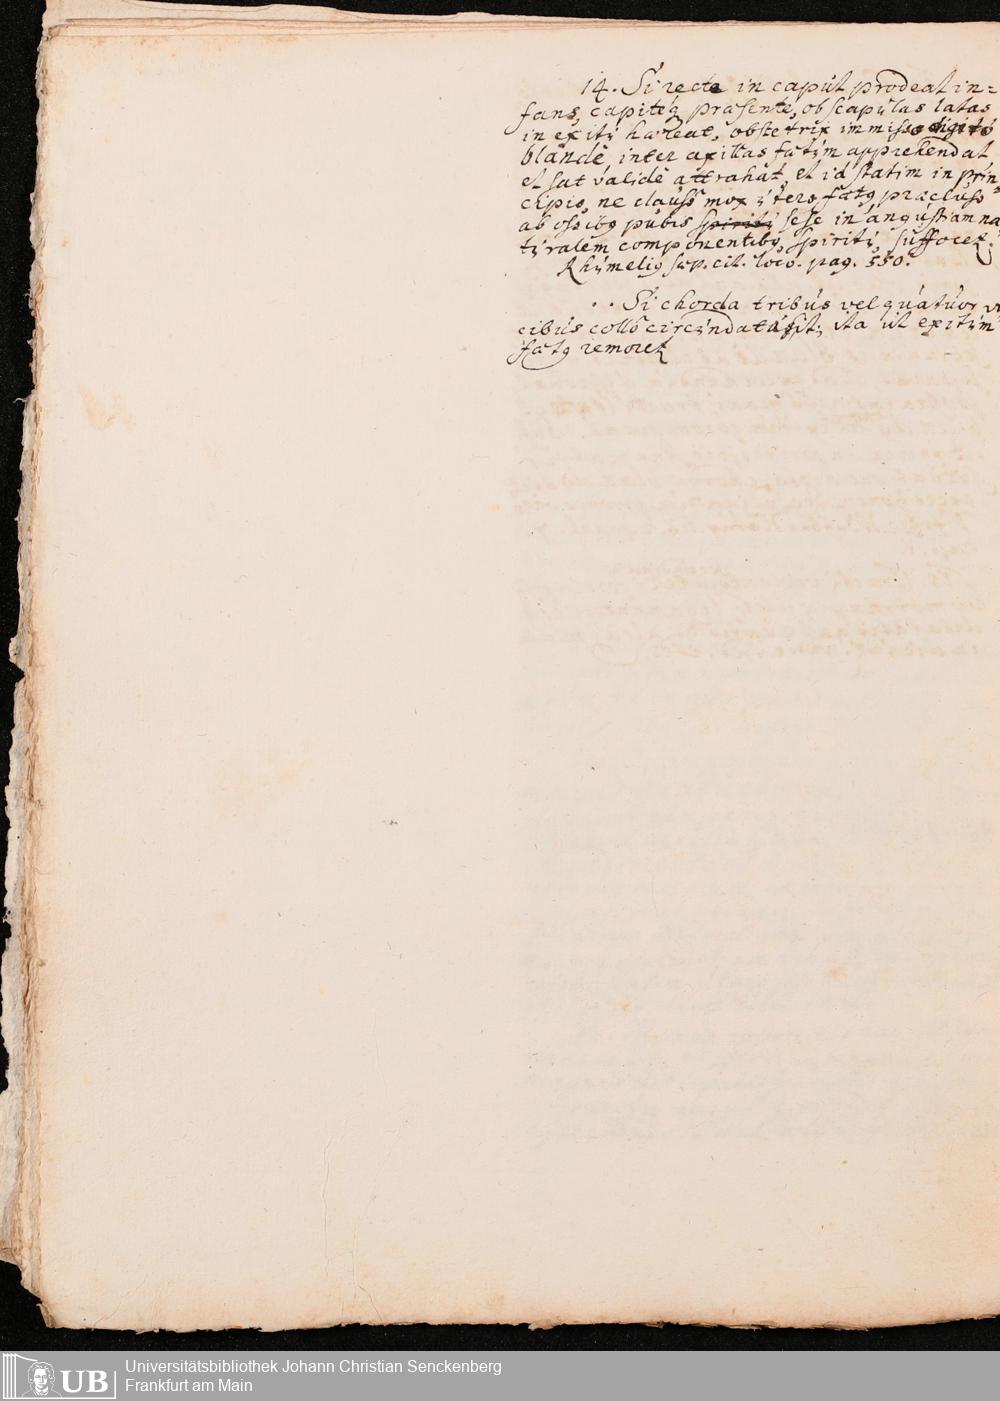 14. Si recte in caput prodeat in=
fans, capiteq praesente, ob scapulas latas
in exitu haereat, obstetrix immisso digito
blandè inter axillas faetum apprehendat
et sat validè attrahat, et id statim in prin
cipio, ne clauso mox utero faetq praeclusô
ab ossibq pubis spiritu sese in angustiam na
turalem componentibq, spiritu, suffocet.
Rhumeliq sup. cit. loco. pag. 550.
. . Si chorda tribus vel quatuor vi
cibus collô circundata sit, ita ut exitum
faetq remoret
Universitätsbibliothek Johann Christian Senckenberg
Frankfurt am Main
UB